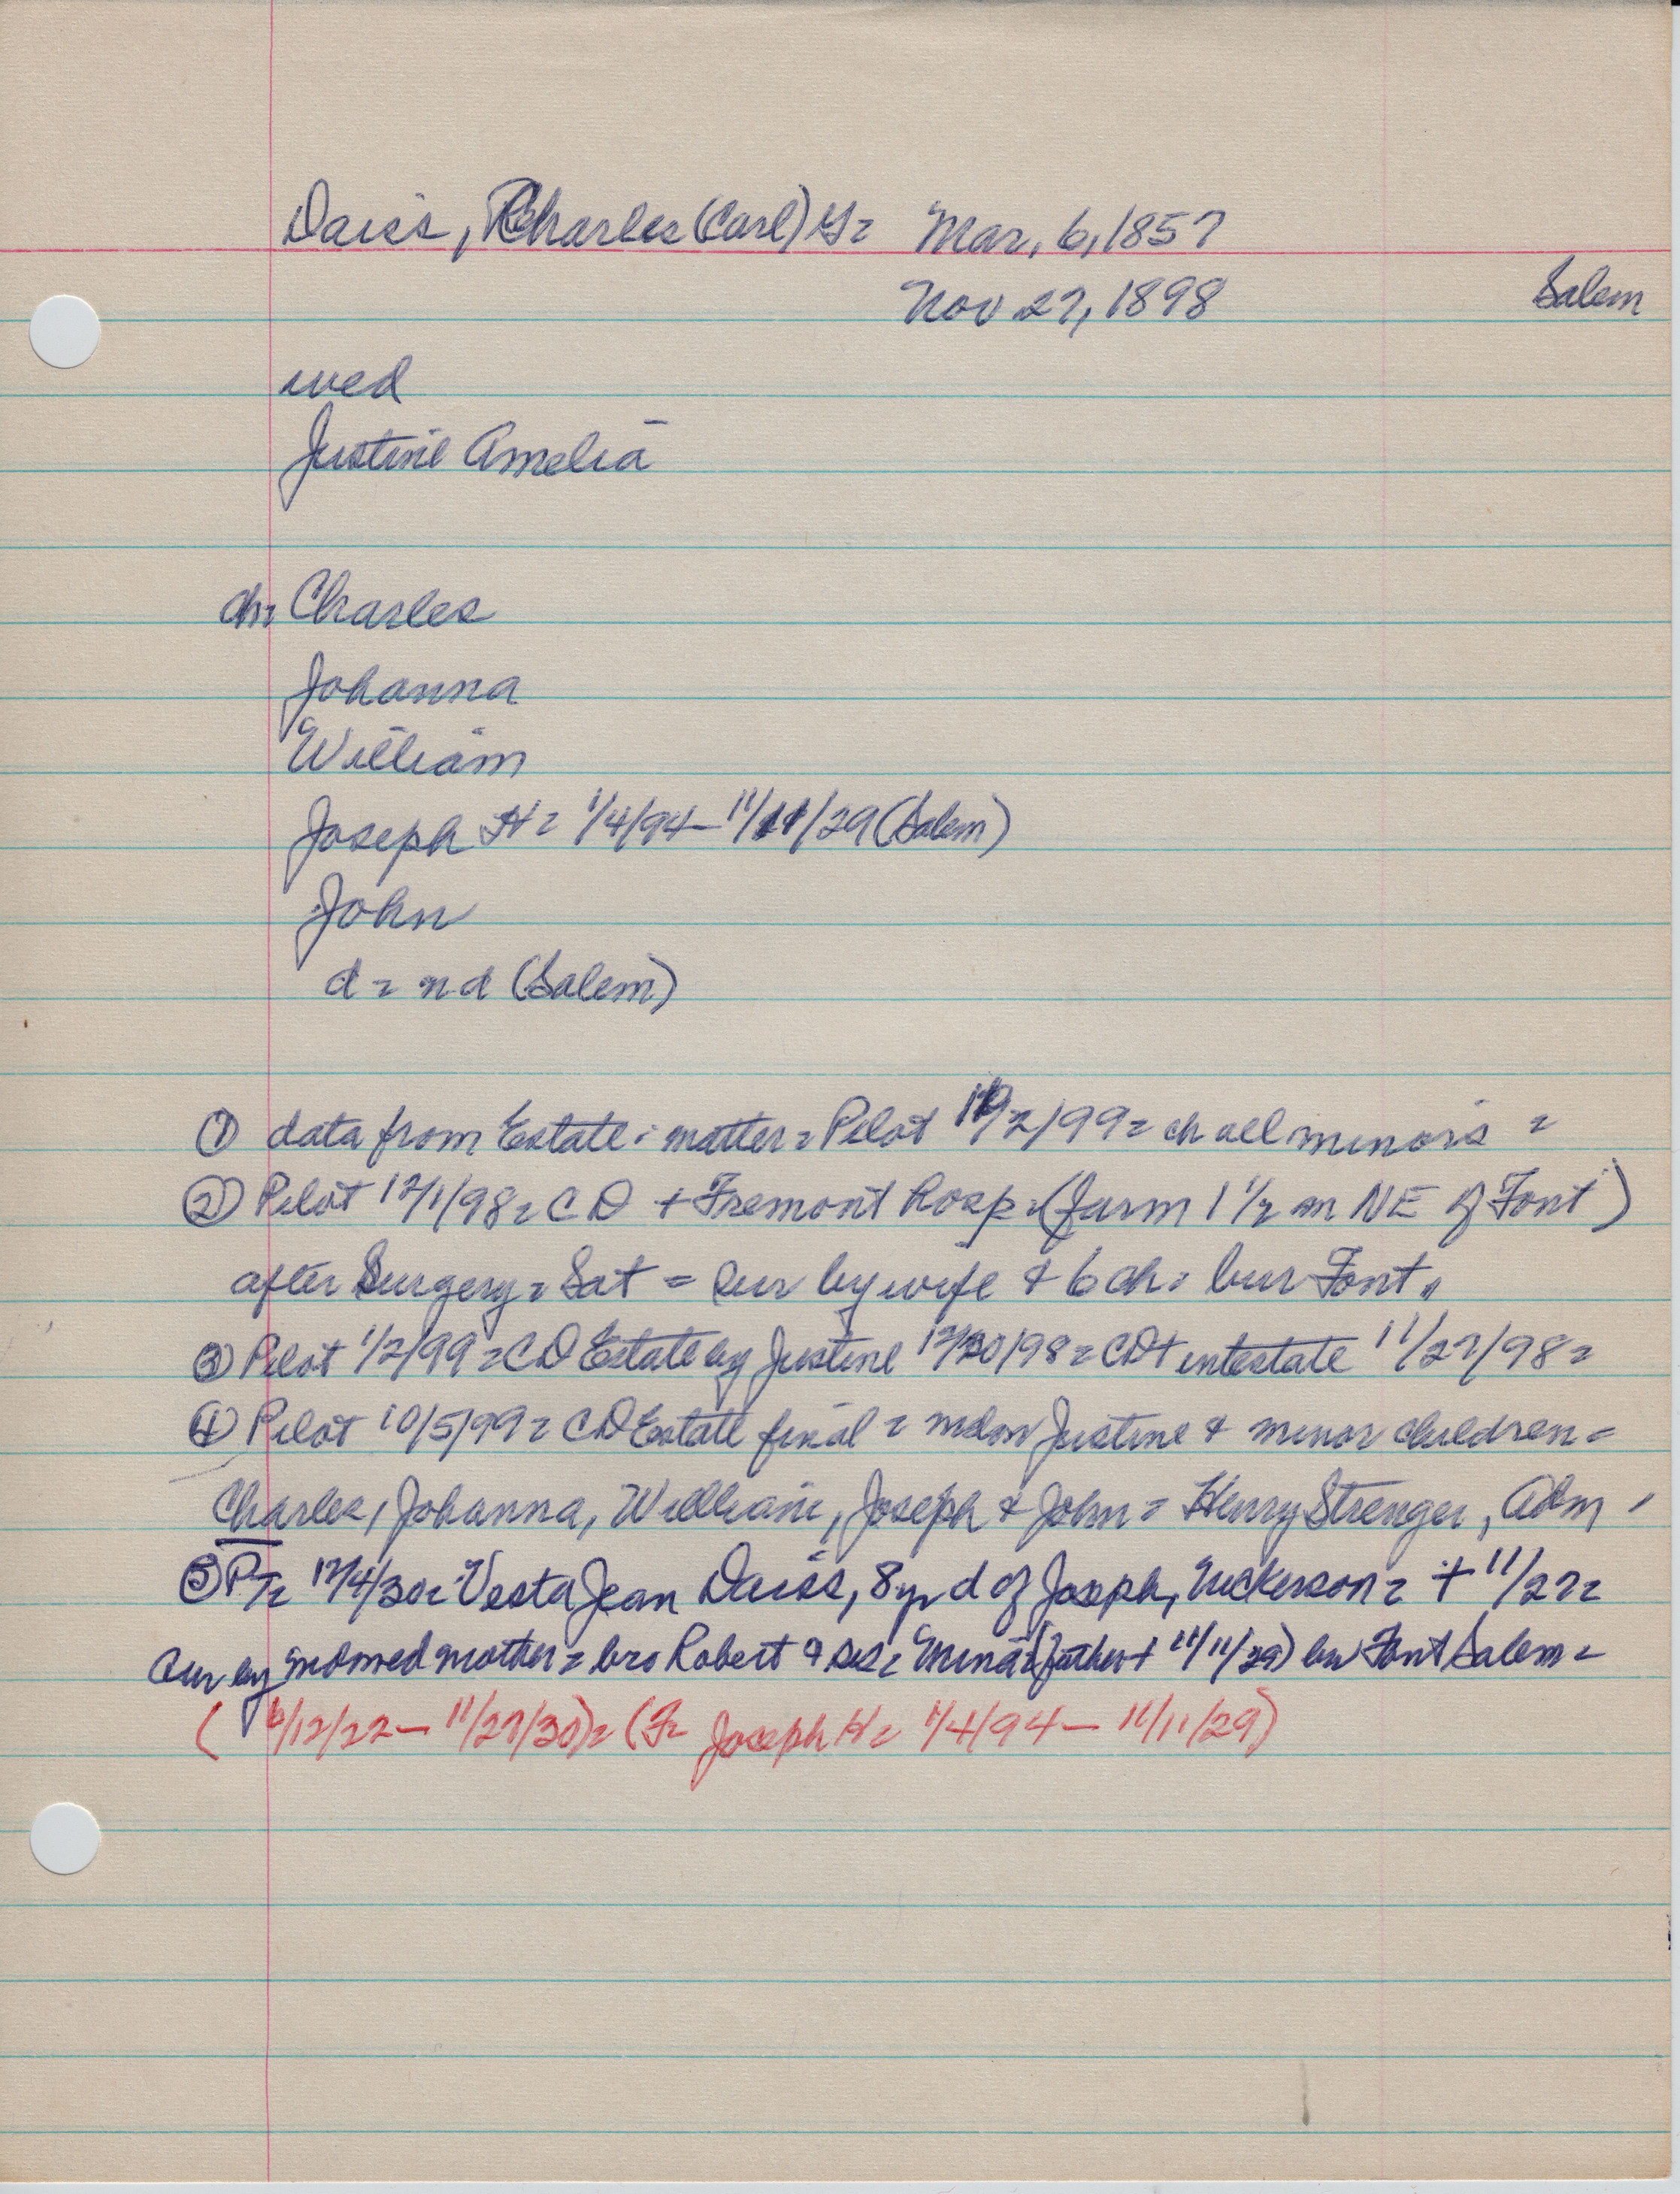 Daiss, Charles (Carl) G= Mar, 6, 1857
Nov 27, 1898 Salem
wed
Justine Amelia
ch= Charles
Johanna
William
Joseph H= 1/4/94 - 11/11/29 (Salem)
John
d= nd (Salem)
① data from Estate: matter= Pilot /2/99= ch all minors =
② Pilot 12/1/98= CD + Fremont Hosp. (farm 1 1/2 m NE of Font)
after Surgery= Sat = sur by wife & 6 ch= bur Font.
③ Pilot 1/2/99= CD Estate by Justine 12/20/98= CD + intestate 11/27/98=
④ Pilot 10/5/99= CD Estate final = Justine & minor children=
Charles, Johanna, William, Joseph & John = Henry Strenger, Adm,
⑤ PT= 12/4/30= Vesta Jean Daiss, 8 yr d of Joseph, Nickerson= + 11/27=
sur by widowed mother= bro Robert & sis= Mina (father + 11/11/29) bur Font Salem=
( 6/12/22 - 11/27/30)= (F= Joseph H= 1/4/94 - 11/11/29)